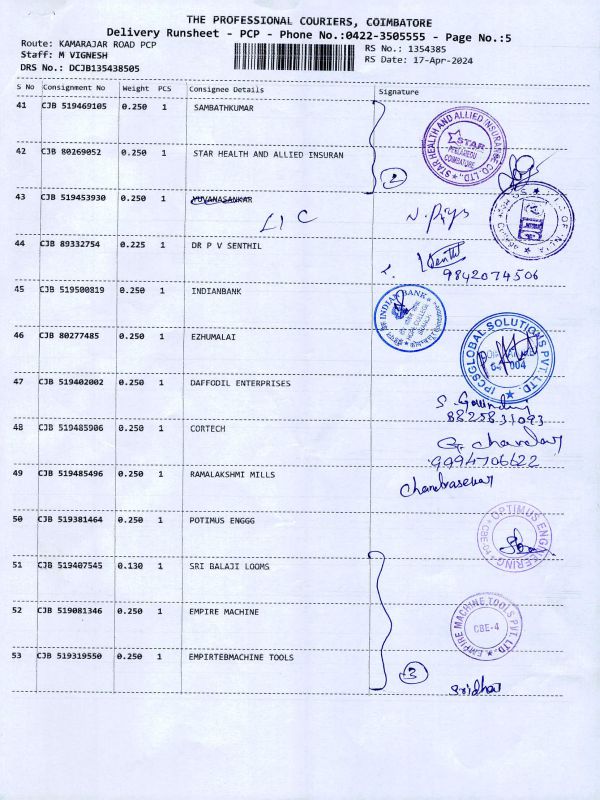 THE PROFESSIONAL COURIERS, COIMBATORE
Delivery Runsheet - PCP - Phone No.:0422-3505555 - Page No.:5
Route: KAMARAJAR ROAD PCP
RS No.: 1354385
Staff: M VIGNESH
RS Date: 17-Apr-2024
DRS No.: DCJB135438505
S No Consignment No Weight PCS Consignee Details Signature
41 CJB 519469105 0.250 1 SAMBATHKUMAR
STAR HEALTH AND ALLIED INSURANCE CO., LTD.
STAR
COIMBATORE
42 CJB 80269052 0.250 1 STAR HEALTH AND ALLIED INSURAN
2
43 CJB 519453930 0.250 1 YUVANASANKAR
LIC
44 CJB 89332754 0.225 1 DR P V SENTHIL
9842074506
45 CJB 519500819 0.250 1 INDIANBANK
INDIAN BANK
46 CJB 80277485 1 EZHUMALAI
IPCSGLOBAL SOLUTIONS PVT. LTD.
47 CJB 519402002 0.250 1 DAFFODIL ENTERPRISES
8825831093
48 CJB 519485906 0.250 1 CORTECH
9994706622
49 CJB 519485496 0.250 1 RAMALAKSHMI MILLS
Chandrasekar
50 CJB 519381464 0.250 1 POTIMUS ENGGG
OPTIMUS ENGINEERING
51 CJB 519407545 0.130 1 SRI BALAJI LOOMS
52 CJB 519081346 0.250 1 EMPIRE MACHINE
EMPIRE MACHINE TOOLS PVT. LTD.
CBE-4
53 CJB 519319550 0.250 1 EMPIRTEBMACHINE TOOLS
3
Sridhar